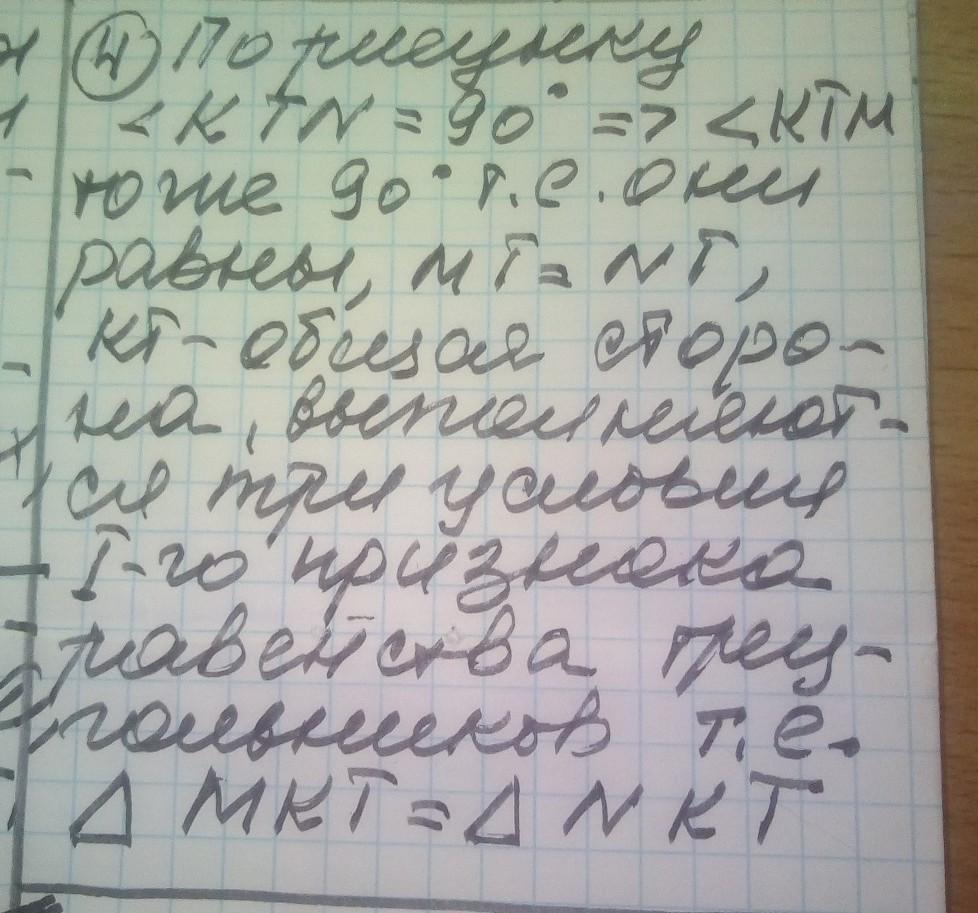 ④ По рисунку
<KTN = 90° => <KTM
тоже 90° т.е. они
равны, MT = NT,
KT - общая сторо-
на, выполняют-
ся три условия
I-го признака
равенства треу-
гольников т.е.
Δ MKT = Δ NKT